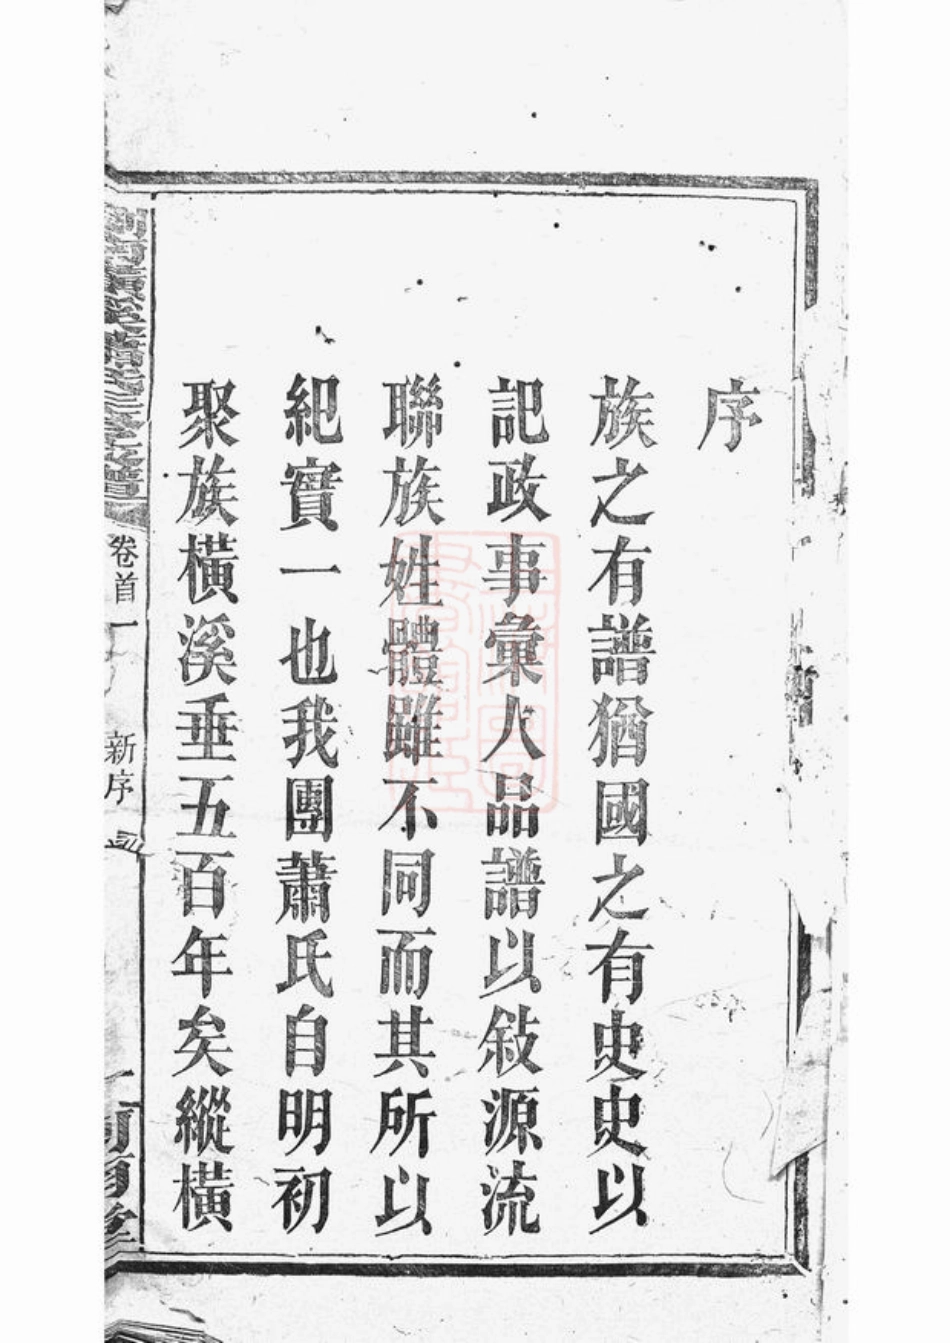 序
族之有譜猶國之有史史以
記政事彙人品譜以敍源流
聯族姓體雖不同而其所以
紀實一也我團蕭氏自明初
聚族橫溪垂五百年矣縱橫
卷首一
新序